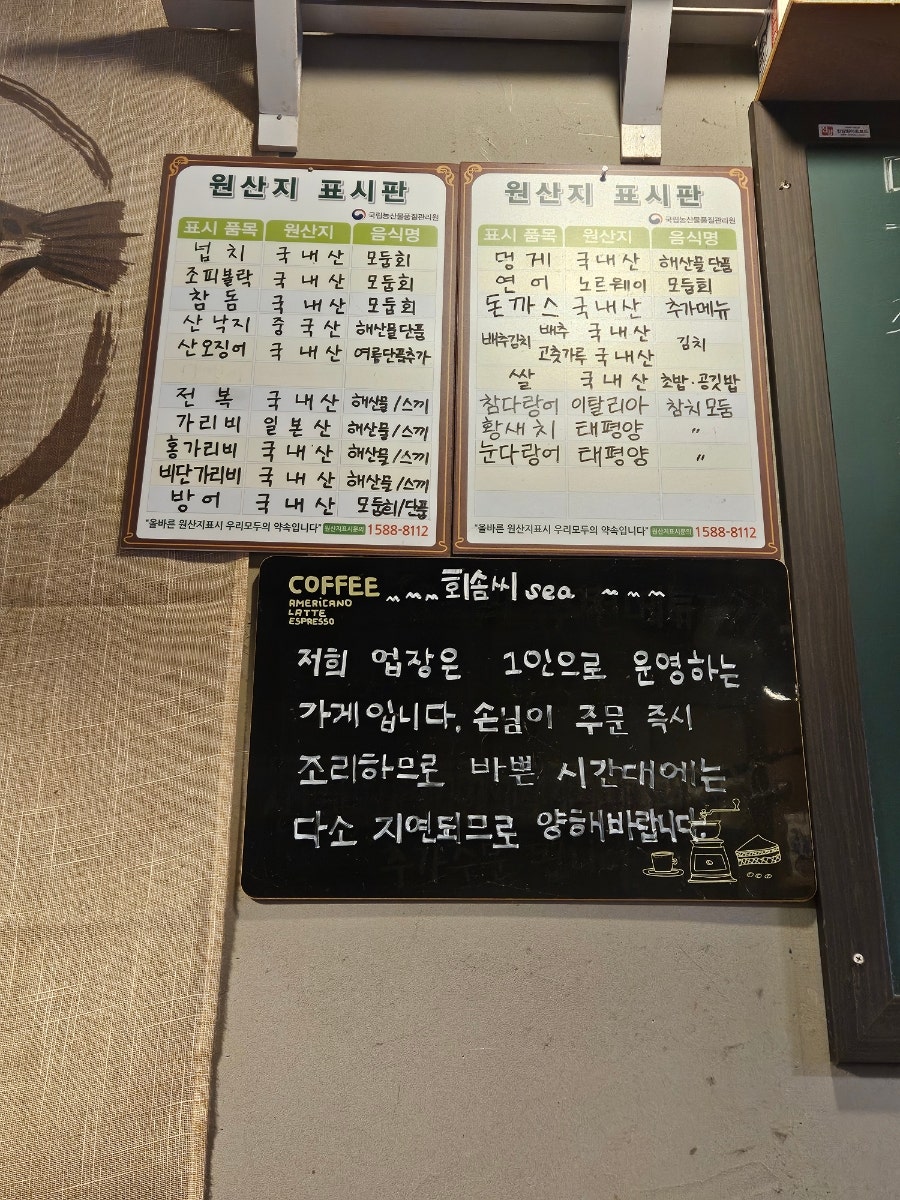 원산지 표시판
국립농산물품질관리원
표시 품목 원산지 음식명
넙치 국내산 모둠회
조피볼락 국내산 모둠회
참돔 국내산 모둠회
산낙지 중국산 해산물단품
산오징어 국내산 여름단품추가
전복 국내산 해산물/스끼
가리비 일본산 해산물/스끼
홍가리비 국내산 해산물/스끼
비단가리비 국내산 해산물/스끼
방어 국내산 모둠회/단품
"올바른 원산지표시 우리모두의 약속입니다" 원산지표시문의 1588-8112
원산지 표시판
국립농산물품질관리원
표시 품목 원산지 음식명
멍게 국내산 해산물단품
연어 노르웨이 모둠회
돈까스 국내산 추가메뉴
배추김치 배추 국내산 김치
고춧가루 국내산
쌀 국내산 초밥·공깃밥
참다랑어 이탈리아 참치모둠
황새치 태평양 〃
눈다랑어 태평양 〃
"올바른 원산지표시 우리모두의 약속입니다" 원산지표시문의 1588-8112
COFFEE ~~~회솜씨 sea ~~~
AMERICANO
LATTE
ESPRESSO
저희 업장은 1인으로 운영하는
가게입니다. 손님이 주문 즉시
조리하므로 바쁜 시간대에는
다소 지연되므로 양해바랍니다.